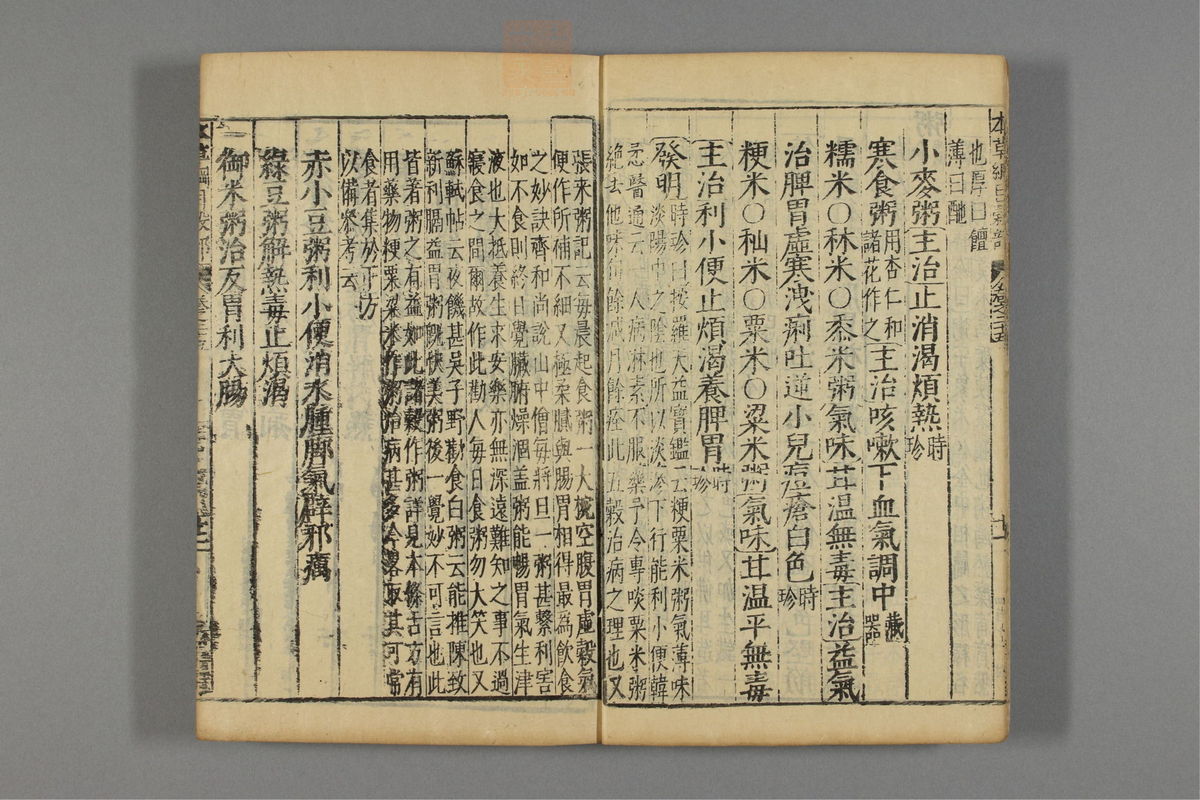 本草綱目穀部
卷之二十五
也厚曰饘
薄曰酏
小麥粥主治止消渴煩熱時珍
寒食粥用杏仁和諸花作之主治咳嗽下血氣調中藏器
糯米○秫米○黍米粥氣味甘温無毒主治益氣
治脾胃虛寒洩痢吐逆小兒痘瘡白色時珍
粳米○秈米○粟米○粱米粥氣味甘温平無毒
主治利小便止煩渴養脾胃時珍
發明時珍曰按羅天益寶鑑云粳粟米粥氣薄味
淡陽中之陰也所以淡滲下行能利小便韓
㤅醫通云一人病淋素不服藥予令專啖粟米粥
絶去他味旬餘减月餘痊此五穀治病之理也又
張來粥記云每晨起食粥一大椀空腹胃虛穀氣
便作所補不細又極柔膩與腸胃相得最為飲食
之妙訣齊和尚說山中僧每將旦一粥甚繫利害
如不食則終日覺臟腑燥涸盖粥能暢胃氣生津
液也大抵養生求安樂亦無深遠難知之事不過
寢食之間爾故作此勸人每日食粥勿大笑也又
蘇軾帖云夜饑甚吳子野勸食白粥云能推陳致
新利膈益胃粥既快美粥後一覺妙不可言也此
皆著粥之有益如此諸穀作粥詳見本條古方有
用藥物粳粟粱米作粥治病甚多今畧取其可常
食者集於下方
以備參考云
赤小豆粥利小便消水腫脚氣辟邪癘
綠豆粥解熱毒止煩渴
御米粥治反胃利大腸